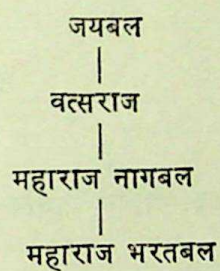 जयबल
वत्सराज
महाराज नागबल
महाराज भरतबल